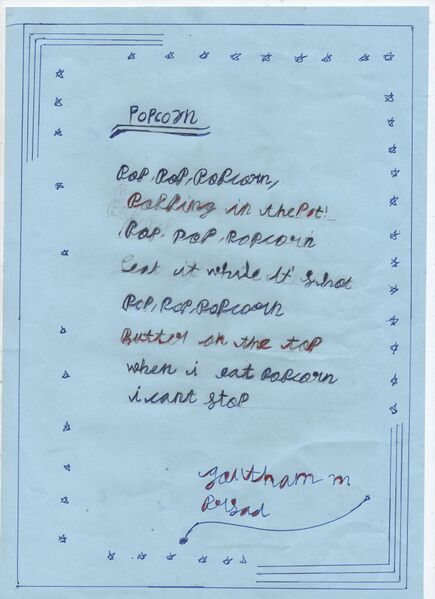 POPCORN
POP, POP, POPcorn,
Popping in the Pot!
POP, POP, POPcorn
eat it while It's hot
POP, POP, POPcorn
Butter on the toP
when i eat POPcorn
i cant stoP
gautham m